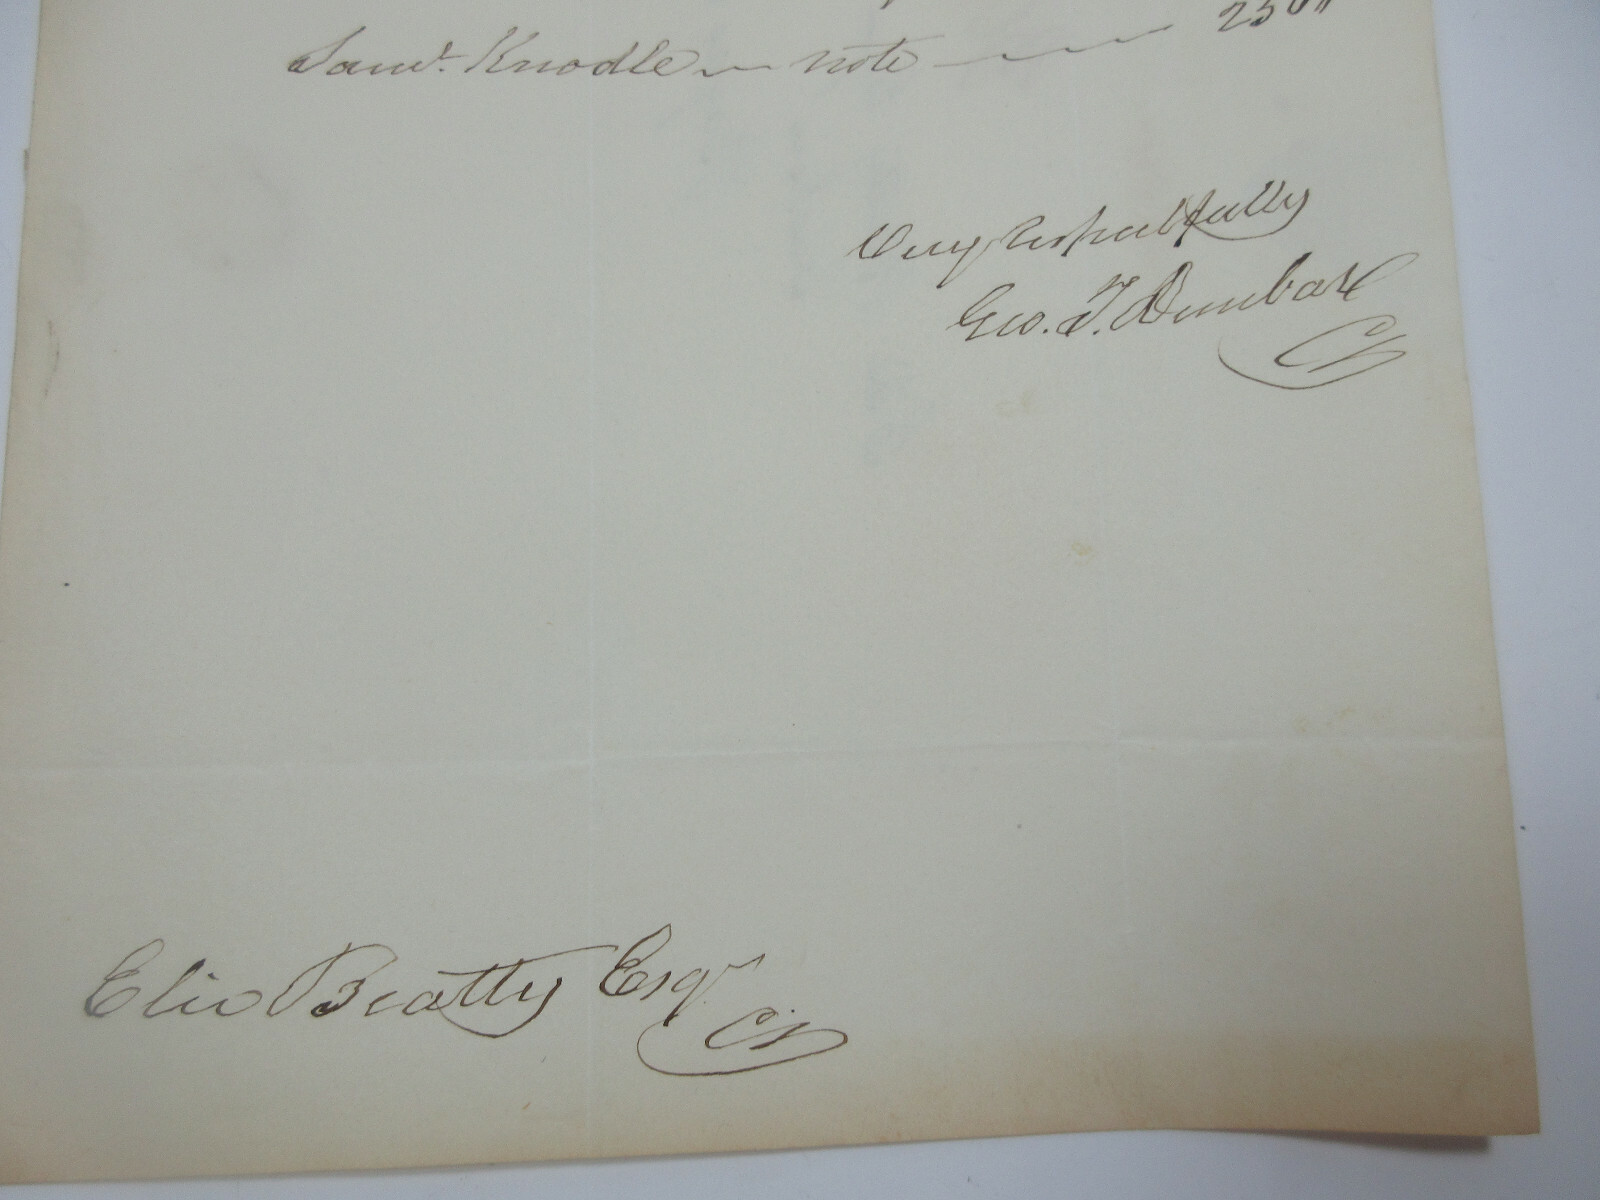 Saml. Knodle — note — 250 "
Very Respectfully
Geo. T. Dunbar
Cr
Elie Beatty Esqr
Cr